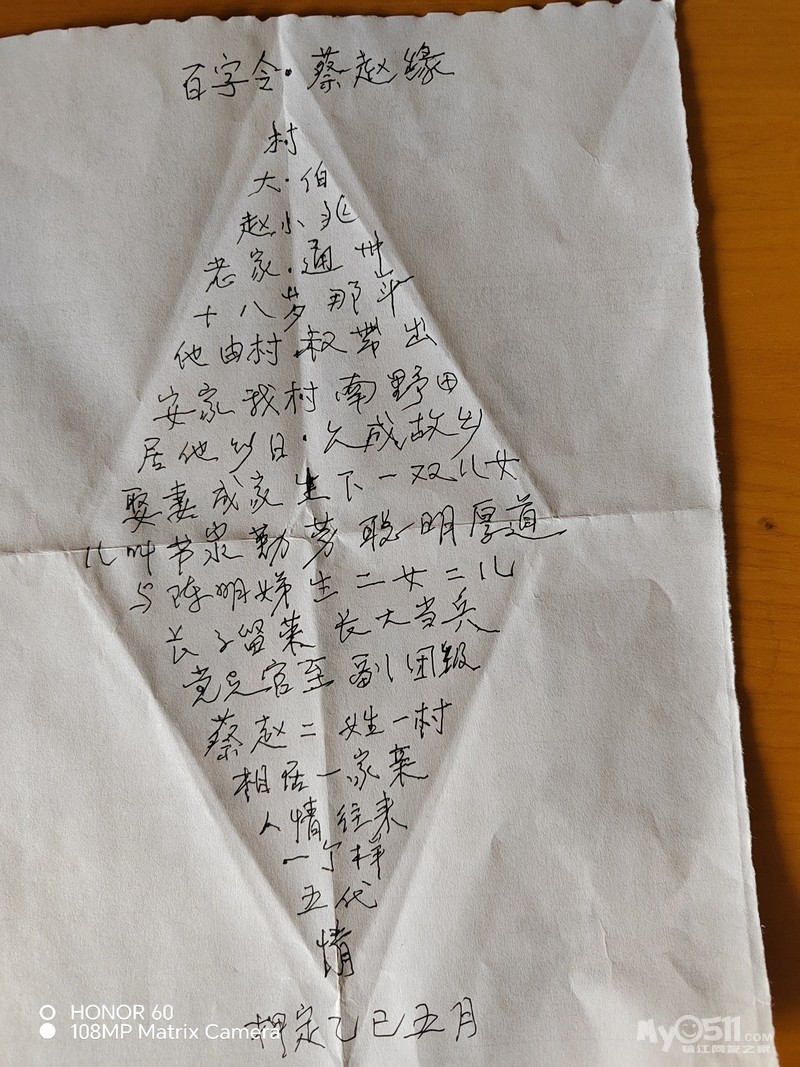 百字令·蔡赵缘
村
大·伯
赵小兆
老家·通州
十八岁那年
他由村叔带出
安家我村南野田
居他乡日·久成故乡
娶妻成家生下一双儿女
儿叫节泉勤劳聪明厚道
与陈明娣生二女二儿
长子留荣长大当兵
党员官至副团级
蔡赵二姓一村
相居一家菜
人情往来
一个样
五代
情
押定乙巳五月
HONOR 60
108MP Matrix Camera
My0511.COM
镇江网友之家